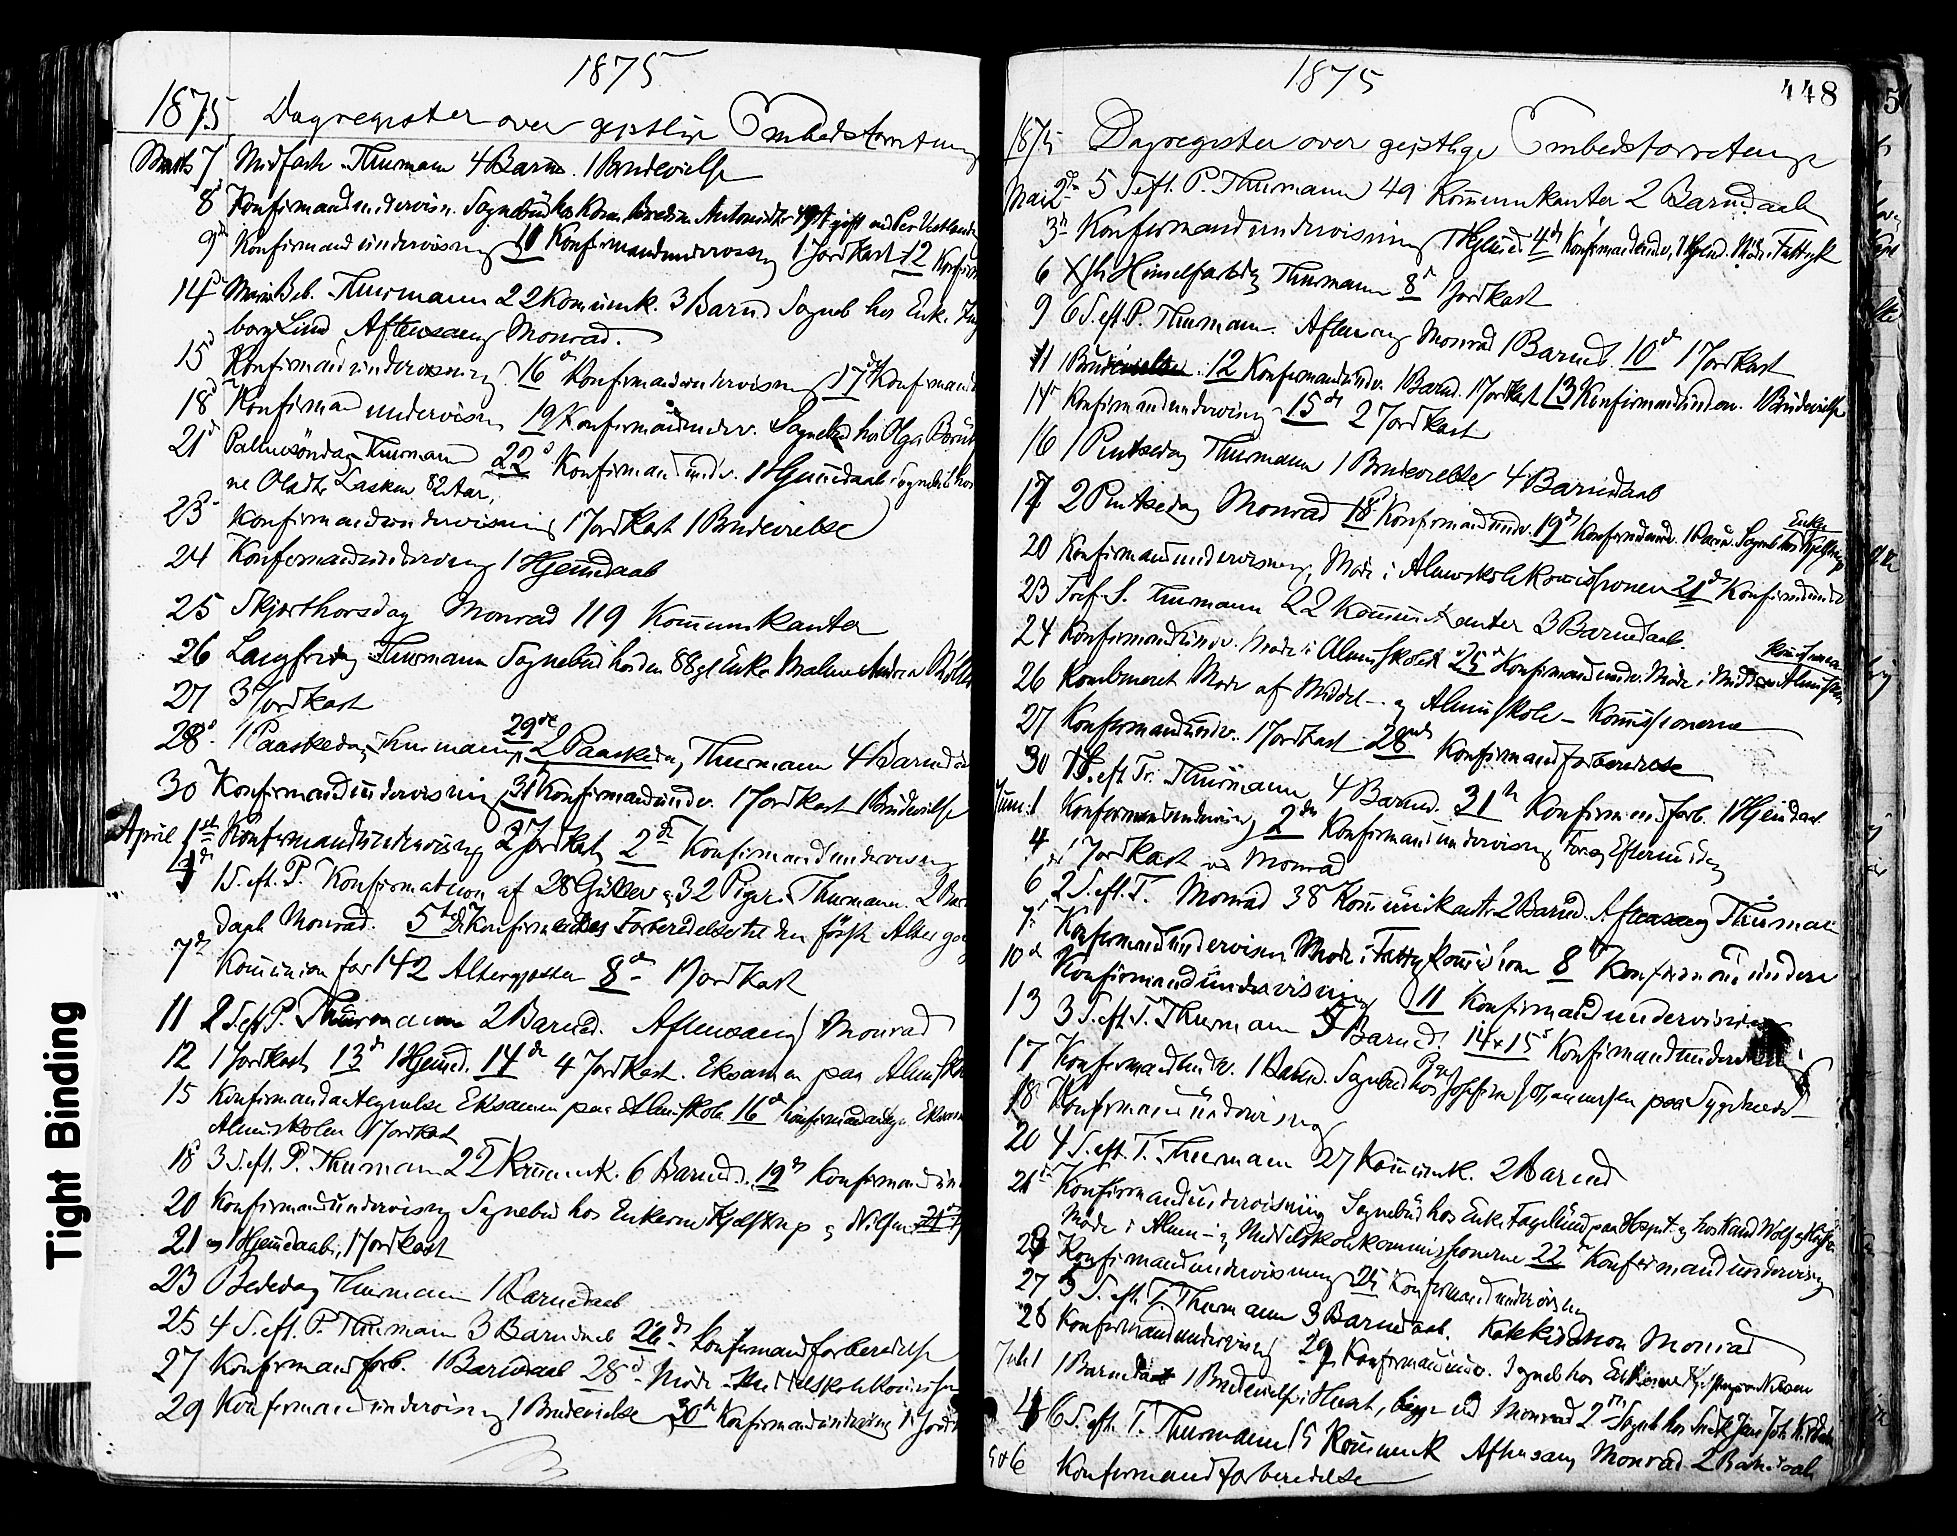 1875
1875 Dagregister over geistlige Embedsforretning
Marts 7 Midfaste Thurmann 4 Barnd. 1 Brudevielse
8 Konfirmandundervisn. Sognebud hos
9 Konfirmandundervisning 10 Konfirmandundervisng 1 Jordkast 12 Konfirm
14 Mariæ Beb. Thurmann 22 Kommunk. 3 Barnd Sogneb hos Enk. Ing
borg Lind Aftensang Monrad.
15 Konfirmandundervisning 16 Konfirmandundervisning 17 Konfirmand
18 Konfirmandundervisn 19 Konfirmandunderv. Sognebud hos Olga
21 Palmesöndag Thurmann 22 Konfirmandundv. 1 Hjemmedaab Sognebud hos
ne Olsdtr Lasken 82 Aar,
23 Konfirmandundervisning 1 Jordkast 1 Brudevielse
24 Konfirmandundervisng 1 Hjemmedaab
25 Skjærthorsdag Monrad 119 Kommunikanter
26 Langfredag Thurmann Sognebud hos den 88 gl Enke
27 3 Jordkast
28 1 Paaskedag Thurmann 29de 2 Paaskedag Thurmann 4 Barnd
30 Konfirmandundervisning 31 Konfirmandundv. 1 Jordkast 1 Brudevielse
April 1st Konfirmandundervisng 2 Jordkast 2de Konfirmandundervisng
4 1 S. eft. P. Konfirmation af 28 Gutter og 32 Piger. Thurmann. 2 Bar
daab Monrad. 5te Konfirmandes Forberedelse til den förste Alterg
7 Kommunion for 142 Altergjester 8de 1 Jordkast
11 2 S. eft P. Thurmann 2 Barnd. Aftensang Monrad
12 1 Jordkast 13de 1 Hjemmd. 14de 4 Jordkast. Eksamen paa Almusk
15 Konfirmandantegnelse Eksamen paa Almuskole 16de Konfirmandantegn. Eksam
Almuskolen 1 Jordkast
18 3 S. eft. P. Thurmann 22 Kommunk. 6 Barnd. 19de Konfirmandun
20 Konfirmandundervisng Sognebud hos Enkerne Kjelstrup og Nilsen
21 1 Hjemmedaab, 1 Jordkast
23 Bededag Thurmann 1 Barnedaab
25 4 S. eft. P. Thurmann 3 Barnedaab 26de Konfirmandforberedelse
27 Konfirmandforb. 1 Barnedaab 28de Möde Middelskolekommission
29 Konfirmandundervisng 1 Brudevielse 30te Konfirmandundervisng 1 Jord
1875
448
1875 Dagregister over geistlige Embedsforretninge
Mai 2 5 S. eft. P. Thurmann 49 Kommunikanter 2 Barnedaab
3 Konfirmandundervisning 1 Hjemmd. 4de Konfirmandundv. 1 Hjemmd. Möde i Fattigk
6 Xsti Himmelfartsdag Thurmann 8de 1 Jordkast
9 6 S. eft. P. Thurmann. Aftensang Monrad 1 Barned. 10de 1 Jordkast
11 1 Brudevielse. 12 Konfirmandundv. 1 Barnd. 1 Jordkast 13 Konfirmandundv. 1 Brudevielse
14 Konfirmandundervisng 15de 2 Jordkast
16 1 Pintsedag Thurmann 1 Brudevielse 4 Barnedaab
17 2 Pintsedag Monrad 18 Konfirmandundv. 19de Konfirmandundv. 1 Barnd. Sogneb hos Enke Kjelstrup
20 Konfirmandundervisning, Möde i Almuskolekommissionen 21de Konfirmandundv
23 Tref. S. Thurmann 22 Kommunikanter 3 Barnedaab.
24 Konfirmandundv. Möde i Almuskolek 25de Konfirmandundv. Möde i Middel- Almuskole kommissionen
26 Kombineret Möde af Middel- og Almuskole-Kommissionerne
27 Konfirmandundv. 1 Jordkast 28de Konfirmandforberedelse
30 1 S. eft. Tr. Thurmann 4 Barned. 31te Konfirmandforb. 1 Hjemmdaab
Juni 1 Konfirmandundervisng 2den Konfirmandundervisng For og Eftermiddag
4 1 Jordkast ved Monrad
6 2 S. eft. T. Monrad 38 Kommunikanter 2 Barnd. Aftensang Thurmann
7 Konfirmandundervisn Möde i Fattigkommissionen 8de Konfirmandunderv
10de Konfirmandundervisning 11 Konfirmandundervisning
13 3 S. eft. T. Thurmann 5 Barned. 14 & 15de Konfirmandundervisning
17 Konfirmandundv. 1 Barnd. Sognebud hos Pige Josefine paa Sygehuset
18 Konfirmandundervisng
20 4 S. eft. T. Thurmann 27 Kommunk. 2 Barned
21 Konfirmandundervisning Sognebud hos Enke Fagerlund paa Hospit. og hos
Möde i Almu- og Middelskolekommissionerne 22 Konfirmandundervisng
Konfirmandundervisning 25 Konfirmandundervisng
27 5 S. eft. T. Thurmann 3 Barnedaab. Katekisation Monrad
28 Konfirmandundervisning 29 Konfirmandundv. Sogneb hos Enkerne Kjelstrup og Nilsen
Juli 1 1 Barnedaab 1 Brudevielse i Huset, begge ved Monrad 2den Sogneb hos
4 6 S. eft. T. Thurmann 15 Kommunk Aftensang Monrad 2 Barnedaab
5 & 6 Konfirmandforberedelse
Tight Binding